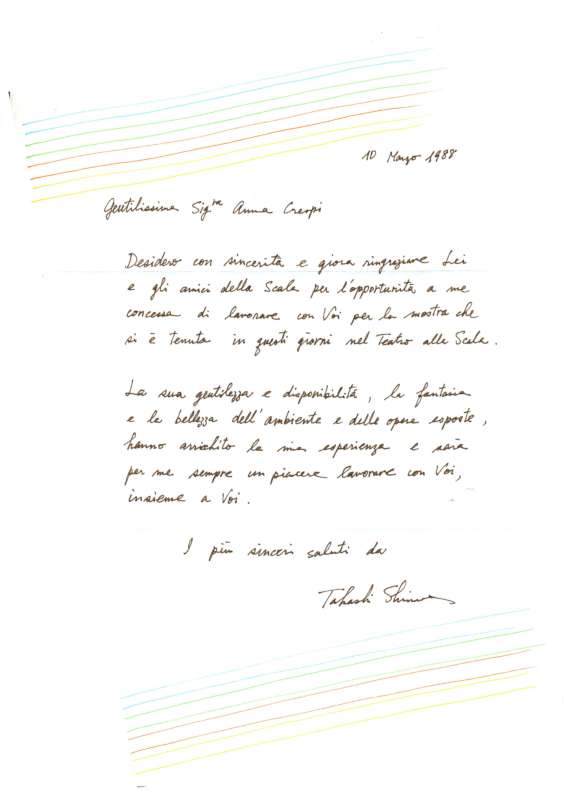 10 Marzo 1988
Gentilissima Sig.ra Anna Crespi
Desidero con sincerità e gioia ringraziare Lei
e gli amici della Scala per l'opportunità a me
concessa di lavorare con Voi per la mostra che
si è tenuta in questi giorni nel Teatro alla Scala.
La sua gentilezza e disponibilità, la fantasia
e la bellezza dell'ambiente e delle opere esposte,
hanno arricchito la mia esperienza e sarà
per me sempre un piacere lavorare con Voi,
insieme a Voi.
I più sinceri saluti da
Takashi